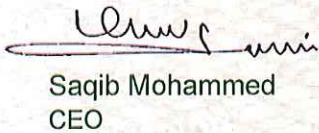 Saqib Mohammed
CEO